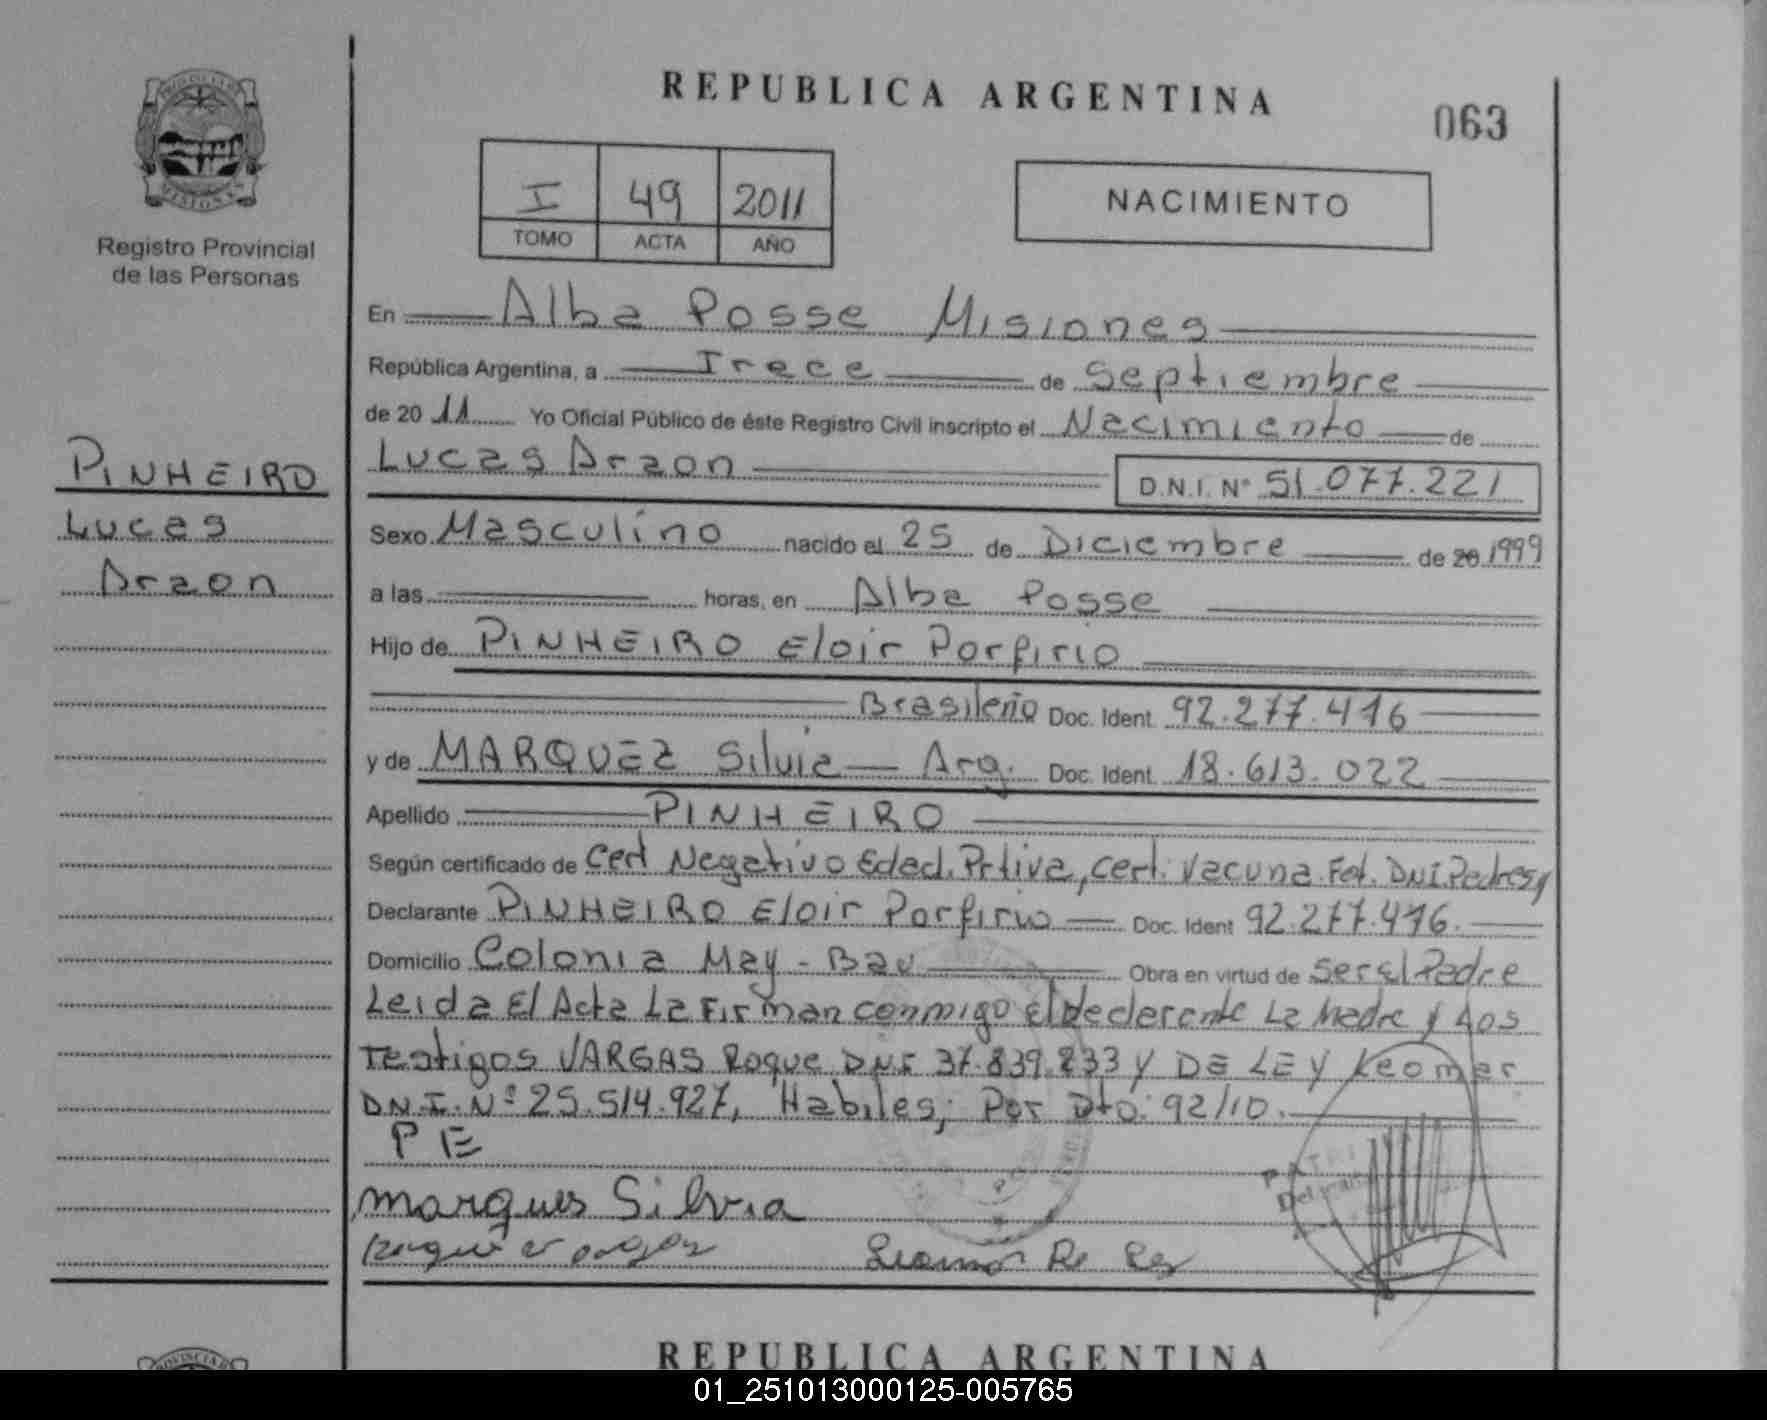 REPUBLICA ARGENTINA
063
I 49 2011
TOMO ACTA AÑO
NACIMIENTO
Registro Provincial
de las Personas
PINHEIRO
Lucas
Araon
En Alba Posse Misiones
República Argentina, a Trece de Septiembre
de 20 11 Yo Oficial Público de éste Registro Civil inscripto el Nacimiento de
Lucas Araon D.N.I. Nº 51.077.221
Sexo Masculino nacido el 25 de Diciembre de 20 1999
a las horas, en Alba Posse
Hijo de PINHEIRO Eloir Porfirio
Brasileño Doc. Ident. 92.277.416
y de MARQUEZ Silvia Arg. Doc. Ident. 18.613.022
Apellido PINHEIRO
Según certificado de Cert Negativo Edad. Prtiva, Cert. Vacuna. Fot. DNI. Padres y
Declarante PINHEIRO Eloir Porfirio Doc. Ident 92.277.416.
Domicilio Colonia May - Bau Obra en virtud de Ser el Padre
Leida El Acta La Firman conmigo el declarante La Madre y Los
Testigos VARGAS Roque DNI 37.839.233 Y DE LEY Leomar
D.N.I. Nº 25.514.927, Habiles, Por Dto. 92/10.
P E
marques Silvia
REPUBLICA ARGENTINA
01_251013000125-005765